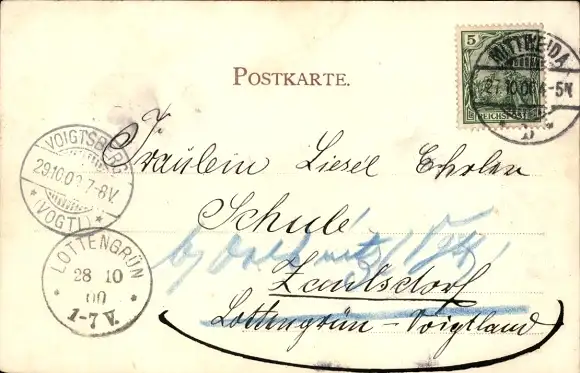 POSTKARTE.
5
REICHSPOST
MITTWEIDA
27.10.00. 4-5N
* b *
VOIGTSBERG
29.10.00. 7-8V.
* (VOGTL) *
Fräulein Liesel Ehrler
Schule
by Oelsnitz i/Vgtl.
Zaulsdorf
Lottengrün - Voigtland
LOTTENGRÜN
28 10
00
1-7 V.